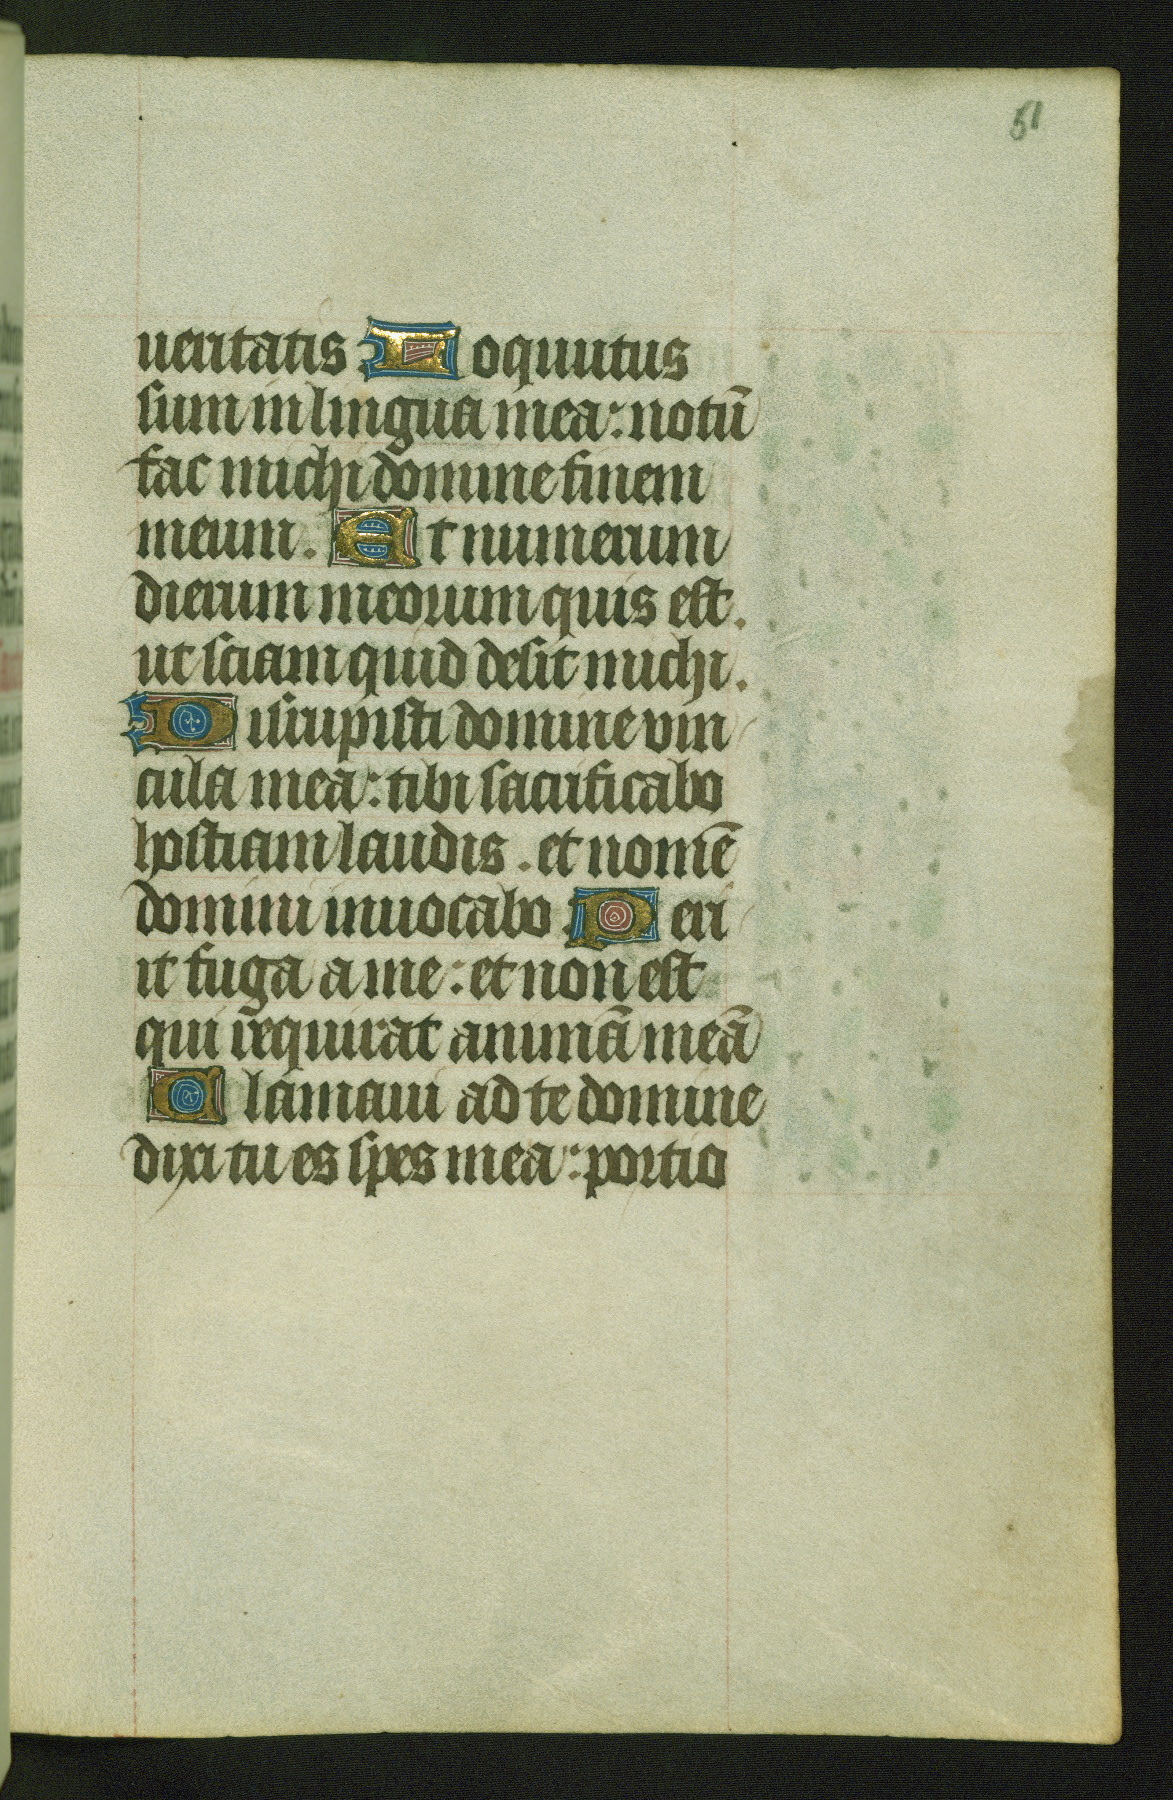 51
ueritatis Loquutus
sum in lingua mea: notū
fac michi domine finem
meum. Et numerum
dierum meorum quis est.
ut sciam quid desit michi.
Disrupisti domine vin
cula mea: tibi sacrificabo
hostiam laudis. et nomē
domini inuocabo Peri
it fuga a me: et non est
qui reqūirat animā meā
Clamaui ad te domine
dixi tu es spes mea: portio